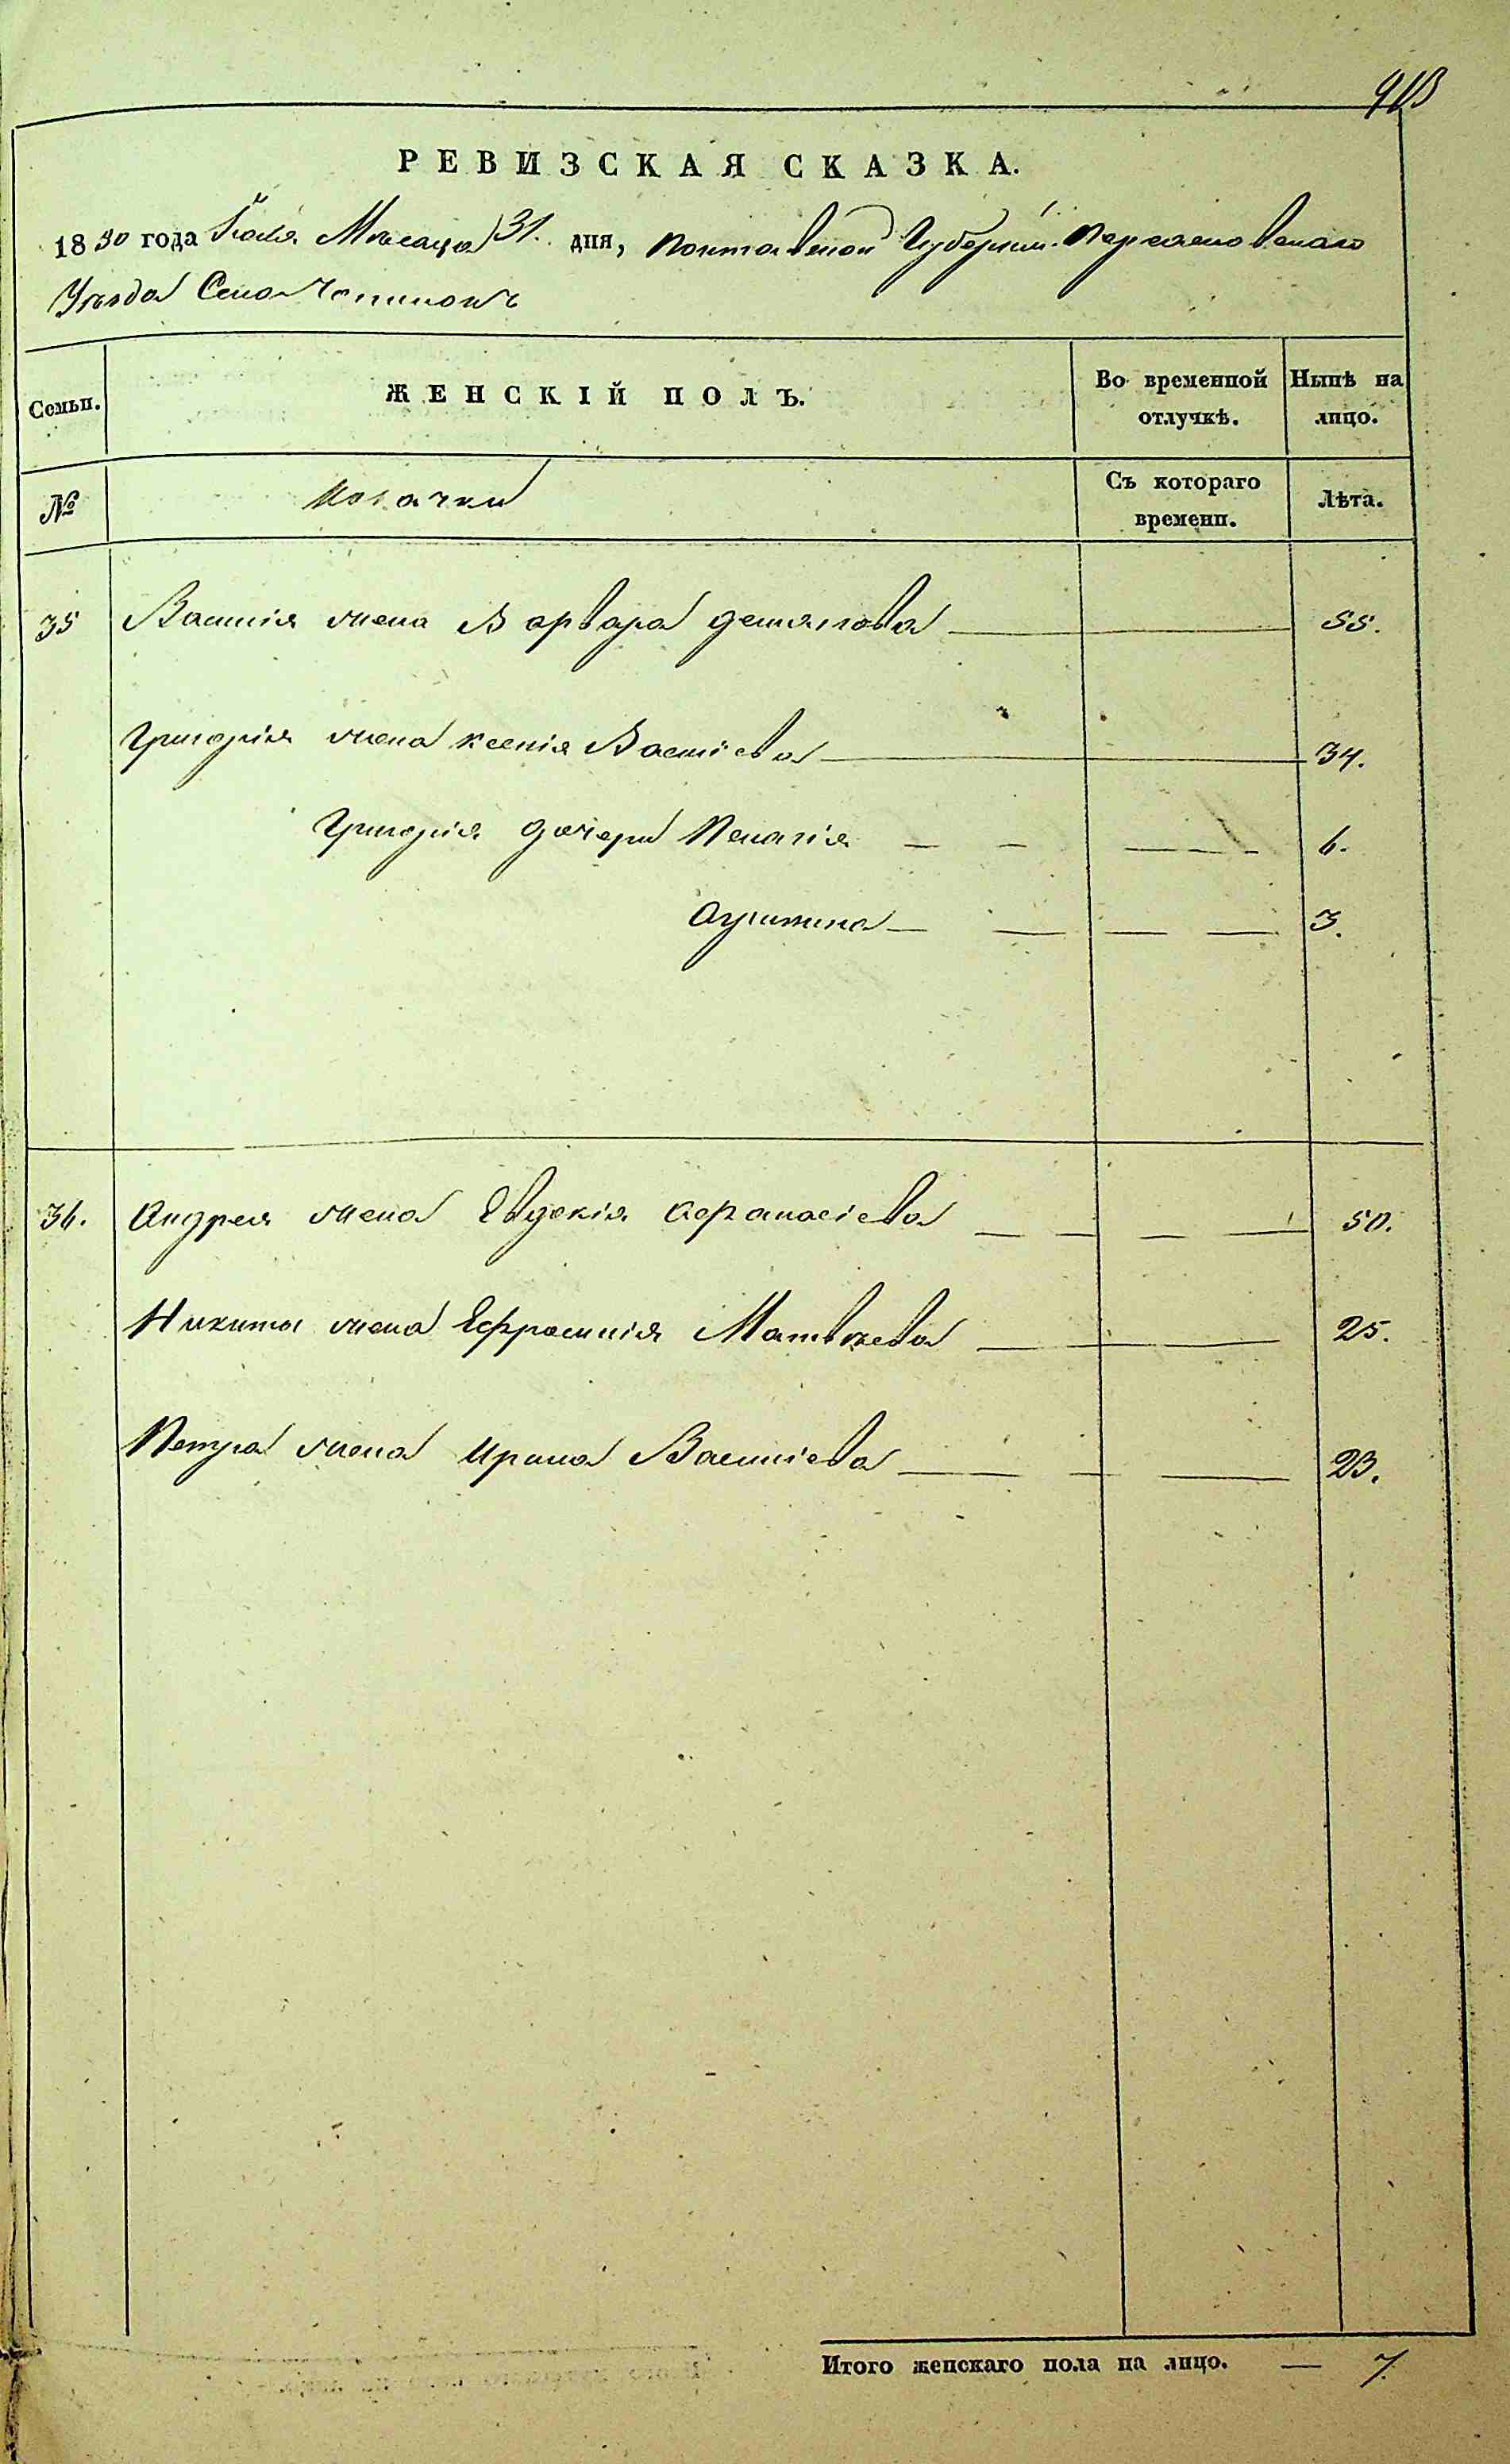 913
РЕВИЗСКАЯ СКАЗКА.
1850 года Іюля Мѣсяца 31. дня, Полтавской Губерніи Переяславскаго
Уѣзда Села
Семьи.
ЖЕНСКІЙ ПОЛЪ.
Во временной отлучкѣ.
Нынѣ на лицо.
№
Козачки
Съ котораго времени.
Лѣта.
35 Василія жена Варвара Демянова 55.
Григорія жена Ксенія Василіева 34.
Григорія дочери Пелагія 6.
Агрипина 3.
36. Андрея жена Евдокія Афанасіева 50.
Никиты жена Ефросинія Матвѣева 25.
Петра жена Ирина Василіева 23.
Итого женскаго пола на лицо. — 7.